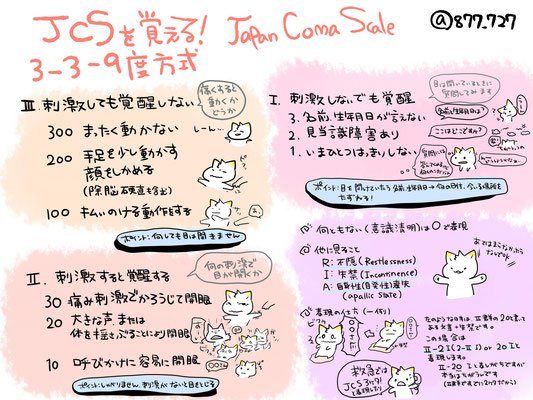 JCSを覚える! Japan Coma Scale
@877_727
3-3-9度方式
Ⅲ. 刺激しても覚醒しない
痛くすると
動くか
どうか
300 まったく動かない
シーン…
200 手足を少し動かす
顔をしかめる
(除脳硬直も含む)
100 払いのける動作をする
ポイント:何しても目は開きません
Ⅱ. 刺激すると覚醒する
何の刺激で
目が開くか
30 痛み刺激でかろうじて開眼
20 大きな声、または
体を揺さぶることにより開眼
10 呼びかけに容易に開眼
ポイント:しかりません、刺激がないと目をとじる
Ⅰ. 刺激しないでも覚醒
目は開いているときに
質問してみます
3. 名前、生年月日が言えない
名前、生年月日は?
2. 見当識障害あり
ここはどこですか?
1. いまひとつはっきりしない
ポイント:目を開けていたら名前、生年月日→今の日付、今いる場所を
たずねる!
何ともない(意識清明)は0で表現
他に見ること
R: 不隠 (Restlessness)
I: 失禁 (Incontinence)
A: 自発性喪失
(apallic State)
あてはまらなかったら
ないでOK
表現の仕方(一例)
この場合は
Ⅱ-2I(2-ⅡI) or 20I と
表現します。
救急では
JCS3ケタ!
と表現したり